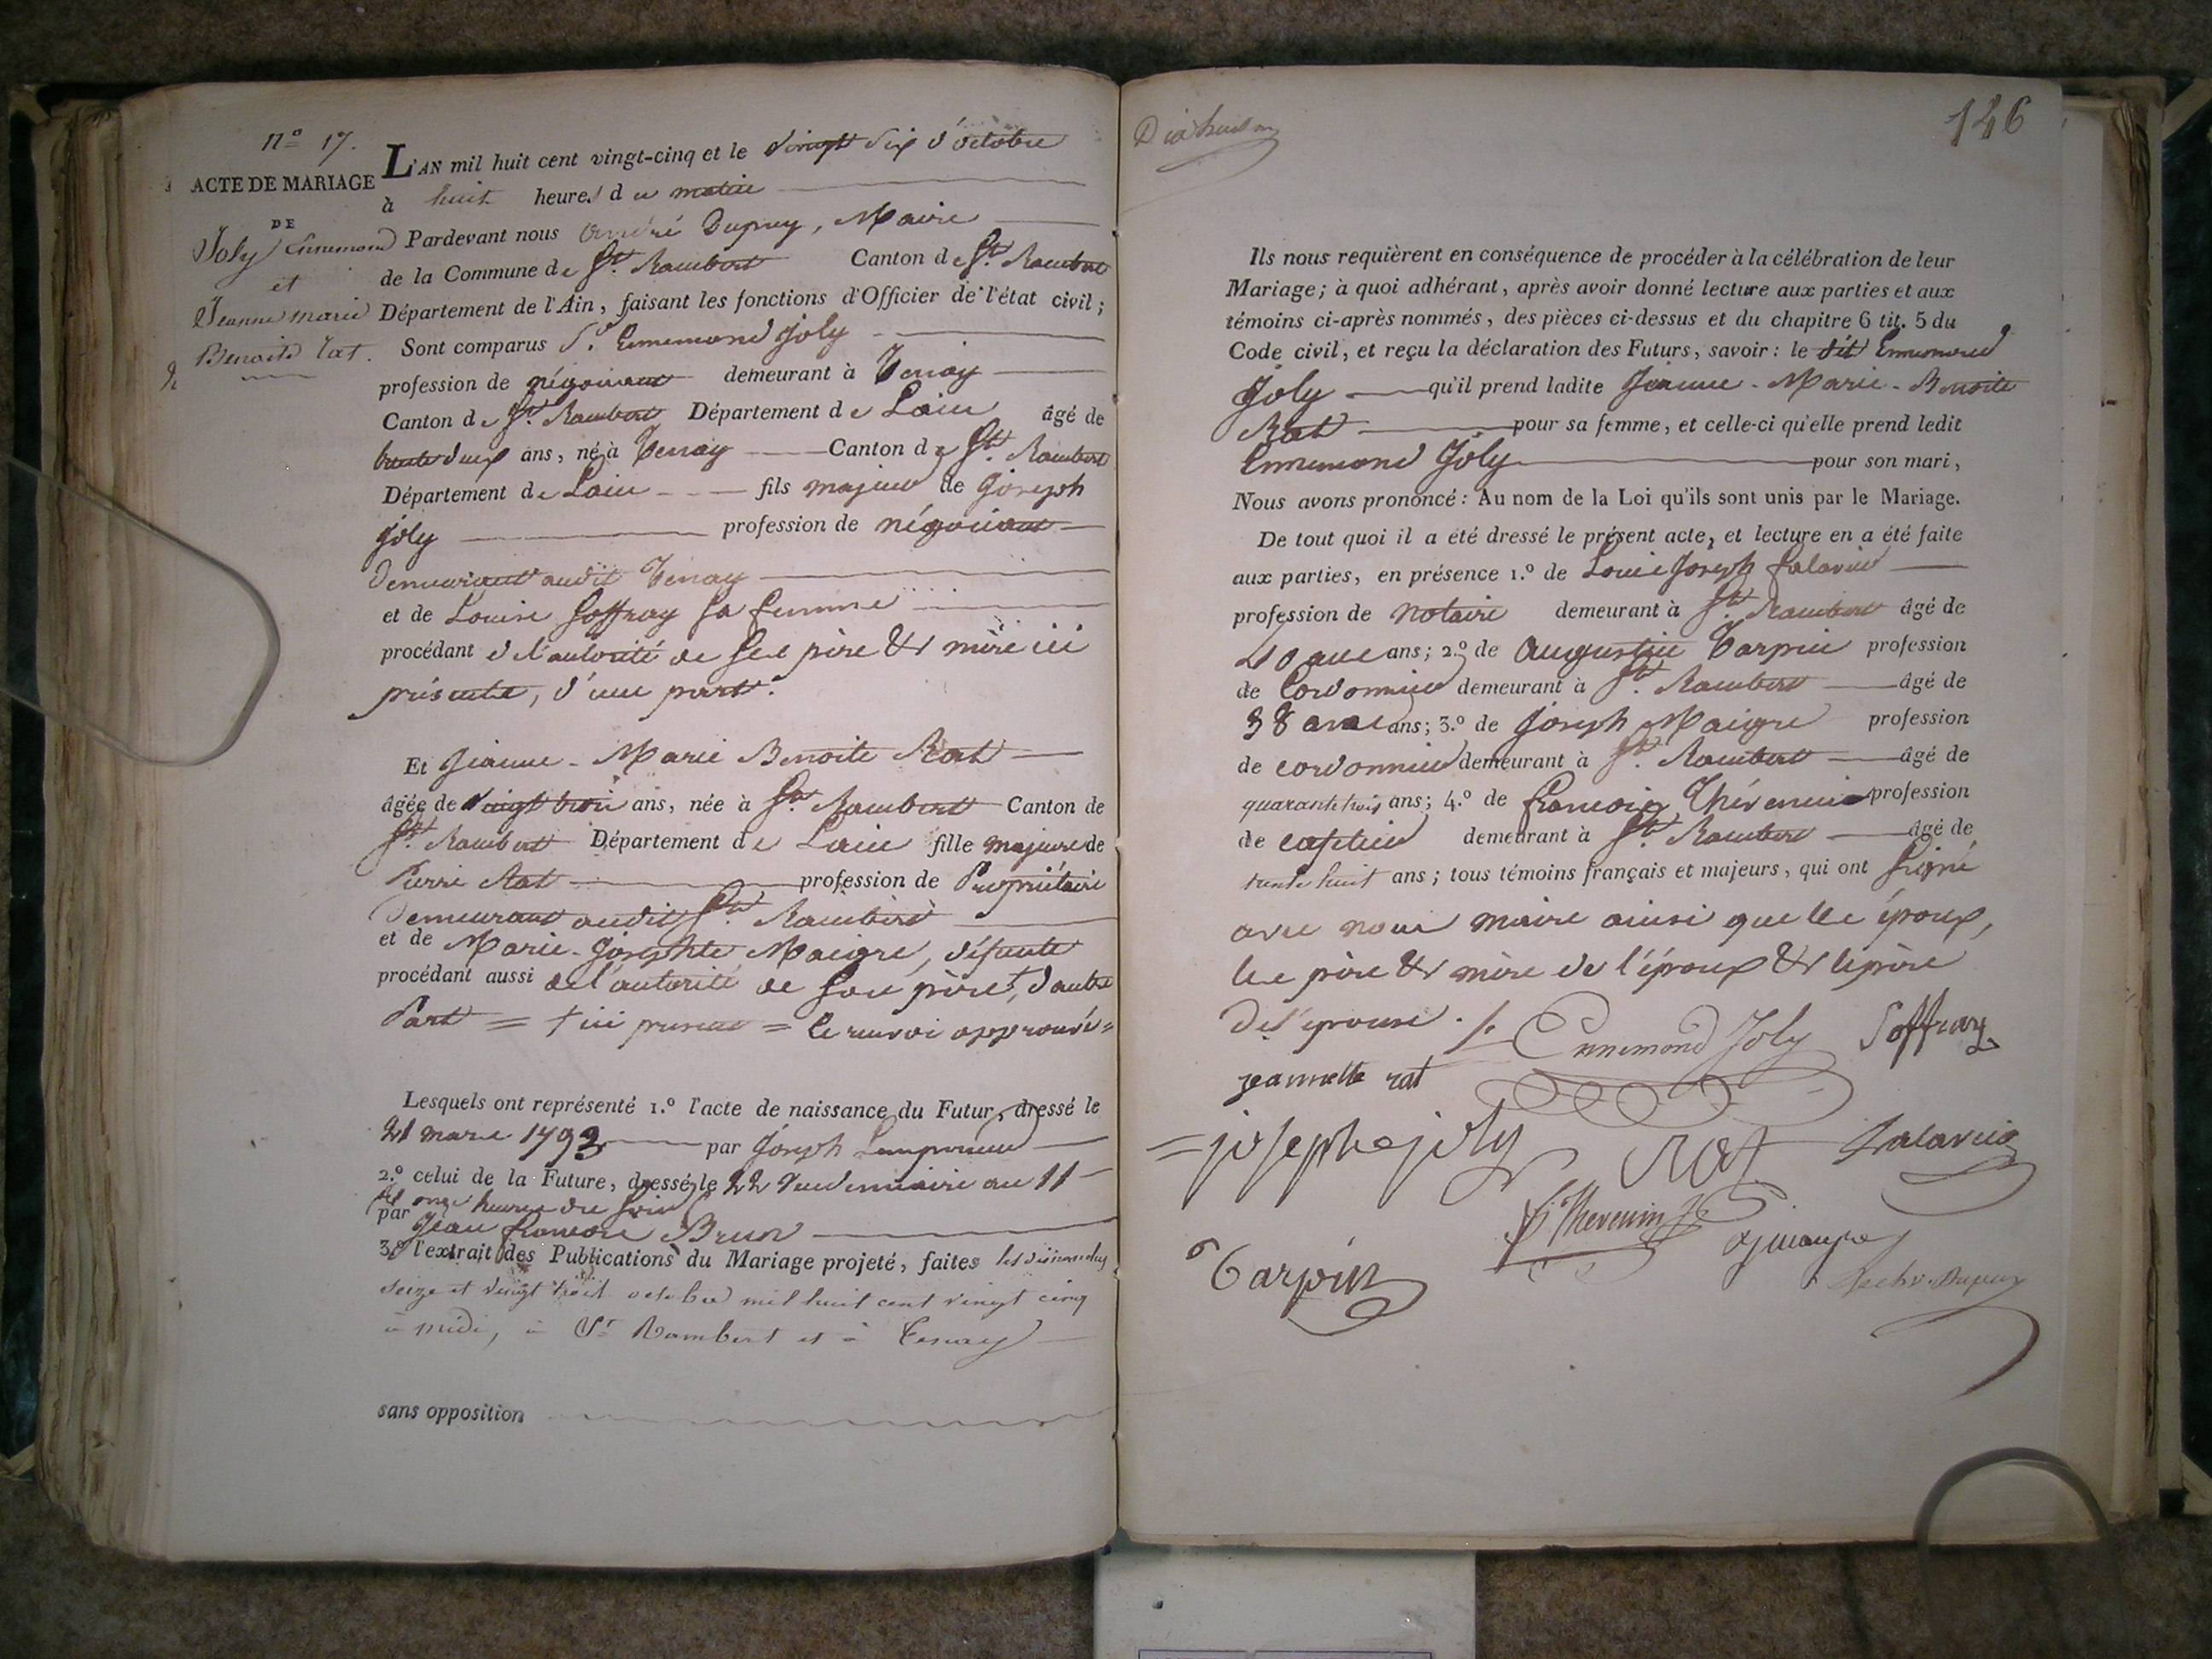 N° 17.
ACTE DE MARIAGE
DE
Joly Ennemond
et
Jeanne marie
Benoite Rat.
L'AN mil huit cent vingt-cinq et le vingt six d'octobre
à huit heures du matin
Pardevant nous André Dupuy, Maire
de la Commune de St. Rambert Canton de St. Rambert
Département de l'Ain, faisant les fonctions d'Officier de l'état civil;
Sont comparus Sr. Ennemond Joly
profession de négociant demeurant à Tenay
Canton de St. Rambert Département de Lain âgé de
trente deux ans, né à Tenay Canton de St. Rambert
Département de Lain fils majeur de Joseph
Joly profession de négociant
demeurant audit Tenay
et de Louise Soffray sa femme
procédant de l'autorité de ses père & mère ici
présents, d'une part.
Et Jeanne-Marie Benoite Rat
âgée de vingt trois ans, née à St. Rambert Canton de
St. Rambert Département de Lain fille majeure de
Pierre Rat profession de Propriétaire
demeurant audit St. Rambert
et de Marie-Josephte Maigre, défunte
procédant aussi de l'autorité de son père +, d'autre
Part = + ici présent = le renvoi approuvé =
Lesquels ont représenté 1.° l'acte de naissance du Futur, dressé le
21 mars 1793 par Joseph
2.° celui de la Future, dressé le 22 Vendemiaire an 11
à onze heures du soir
par Jean francois Brun
3.° l'extrait des Publications du Mariage projeté, faites les dimanches
seize et vingt trois octobre mil huit cent vingt cinq
à midi, à St Rambert et à Tenay
sans opposition
Dixhuit
146
Ils nous requièrent en conséquence de procéder à la célébration de leur
Mariage; à quoi adhérant, après avoir donné lecture aux parties et aux
témoins ci-après nommés, des pièces ci-dessus et du chapitre 6 tit. 5 du
Code civil, et reçu la déclaration des Futurs, savoir: le dit Ennemond
Joly qu'il prend ladite Jeanne-Marie-Benoite
Rat pour sa femme, et celle-ci qu'elle prend ledit
Ennemond Joly pour son mari,
Nous avons prononcé: Au nom de la Loi qu'ils sont unis par le Mariage.
De tout quoi il a été dressé le présent acte, et lecture en a été faite
aux parties, en présence 1.° de Louis Joseph falavier
profession de notaire demeurant à St. Rambert âgé de
40 ans ans; 2.° de Augustin Tarpin profession
de Cordonnier demeurant à St. Rambert âgé de
38 ans ans; 3.° de Joseph Maigre profession
de cordonnier demeurant à St. Rambert âgé de
quarante trois ans; 4.° de francois Thévenin profession
de demeurant à St. Rambert âgé de
trente huit ans; tous témoins français et majeurs, qui ont signé
avec nous maire ainsi que les époux,
les père & mère de l'époux & le père
de l'épouse ./.
Ennemond Joly Soffray
jeannette rat
joseph joly Rat falavier
f. Thevenin
Tarpin
Dupuy